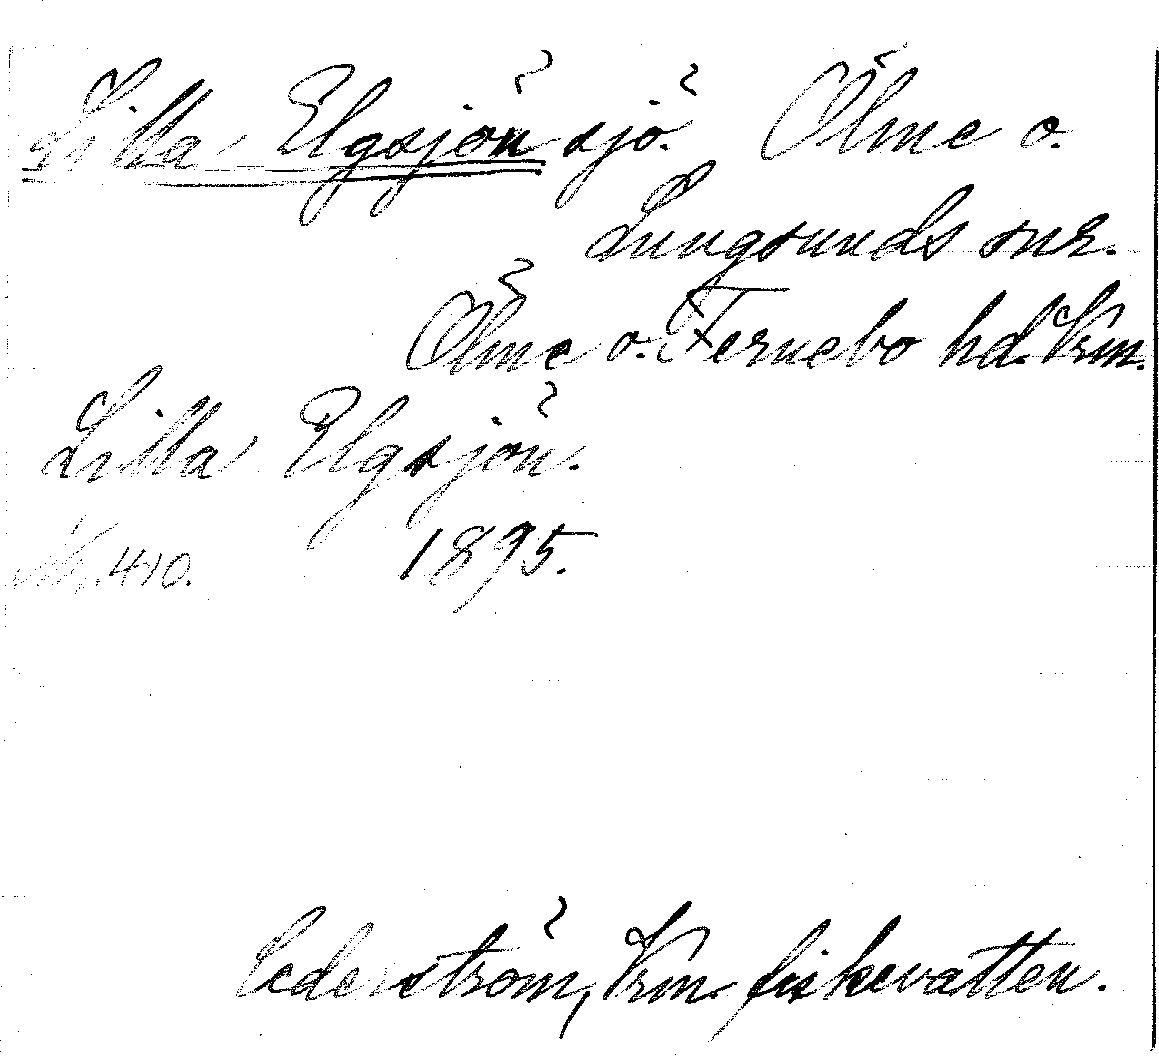 Lilla Elgsjön sjö. Ölme o.
Lungsunds snr.
Ölme o. Fernebo hd. Vrm.
Lilla Elgsjön.
410. 1895.
Cederström, Vrm. fiskevatten.